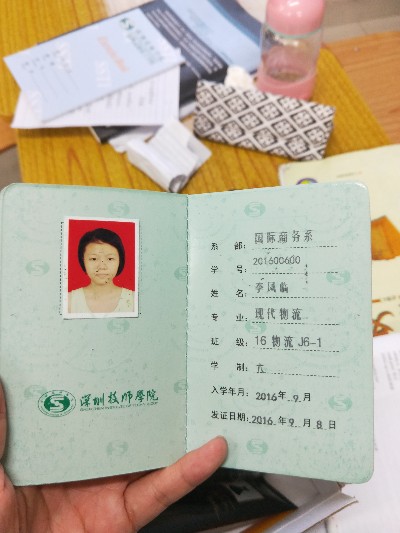 深圳技师学院
系 部: 国际商务系
学 号: 201600600
姓 名: 李凤临
专 业: 现代物流
班 级: 16物流J6-1
学 制: 六
入学年月: 2016年 9 月
发证日期: 2016年 9 月 8 日